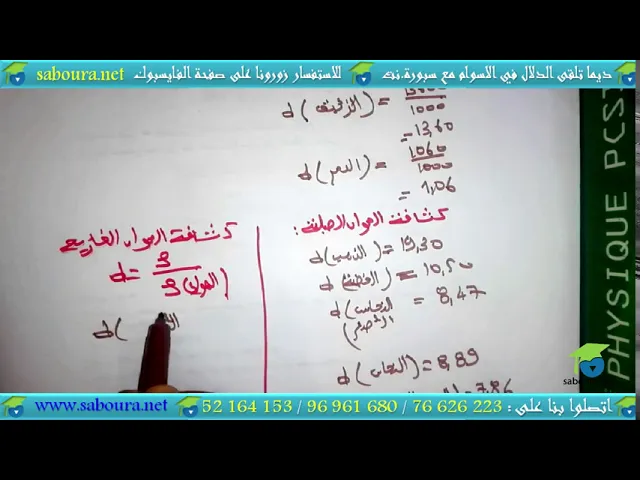 ديما تلقى الدلال في الاسوام مع سبورة.نت للاستفسار زورونا على صفحة الفايسبوك saboura.net
d (الزئبق) = 13600/1000
= 13,60
d (الدم) = 1060/1000
= 1,06
كثافة المواد الصلبة :
d (الذهب) = 19,30
d (الفضة) = 10,50
d (النحاس الأصفر) = 8,47
d (النحاس) = 8,89
= 7,86
كثافة المواد الغازية
d = ρ / ρ (الهواء)
d (
PHYSIQUE PCST
www.saboura.net 52 164 153 / 96 961 680 / 76 626 223 : اتصلوا بنا على